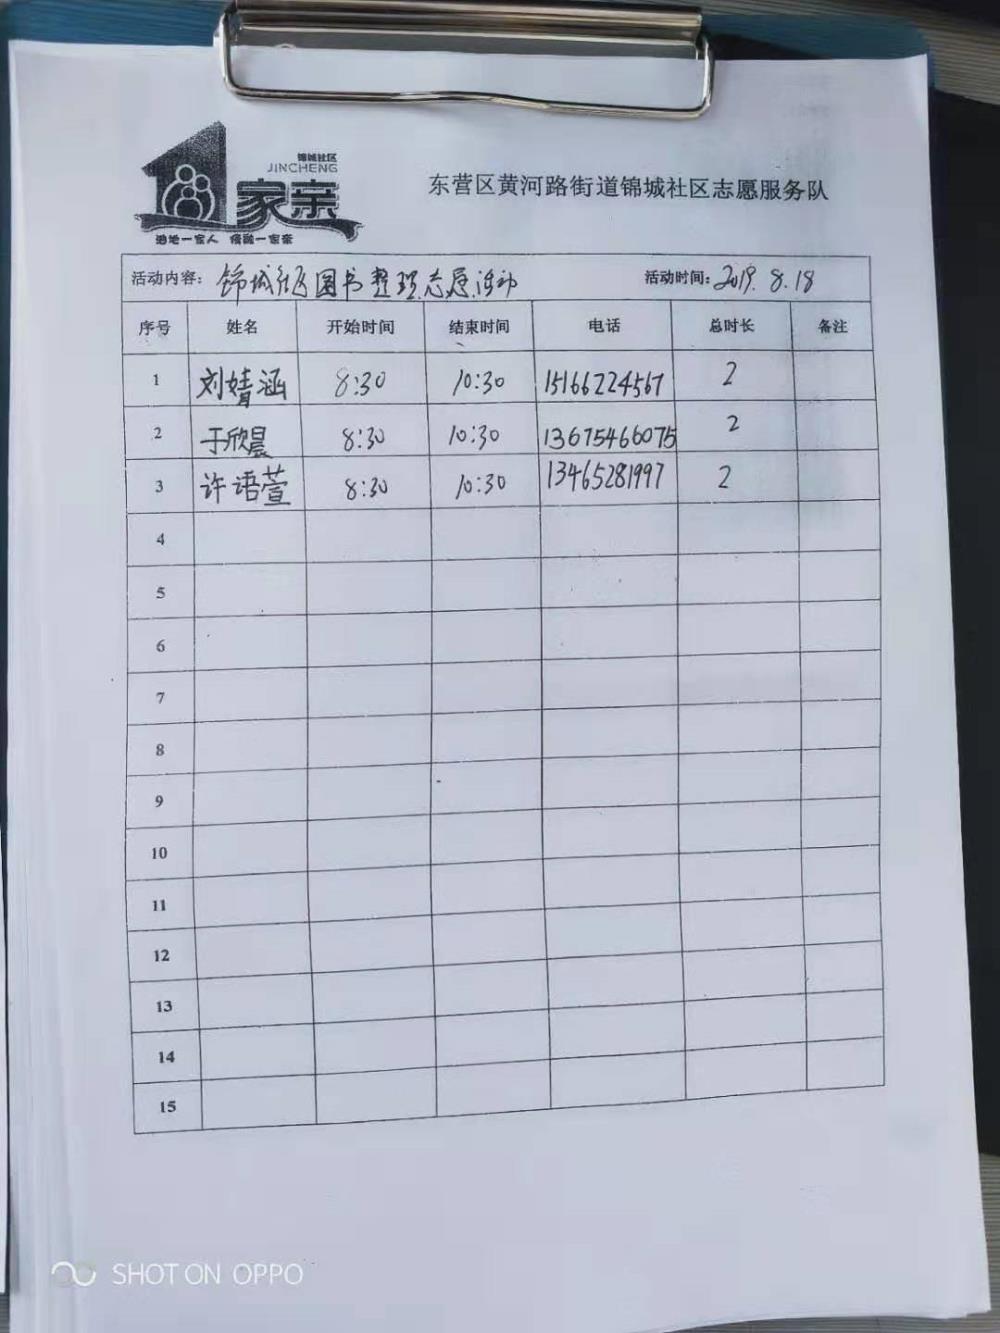 锦城社区
JINCHENG
家亲
油地一家人 侉融一家亲
东营区黄河路街道锦城社区志愿服务队
活动内容: 锦城社区图书整理志愿活动 活动时间: 2019.8.18
序号 姓名 开始时间 结束时间 电话 总时长 备注
1 刘婧涵 8:30 10:30 15166224567 2
2 于欣晨 8:30 10:30 13675466075 2
3 许语萱 8:30 10:30 13465281997 2
4
5
6
7
8
9
10
11
12
13
14
15
SHOT ON OPPO